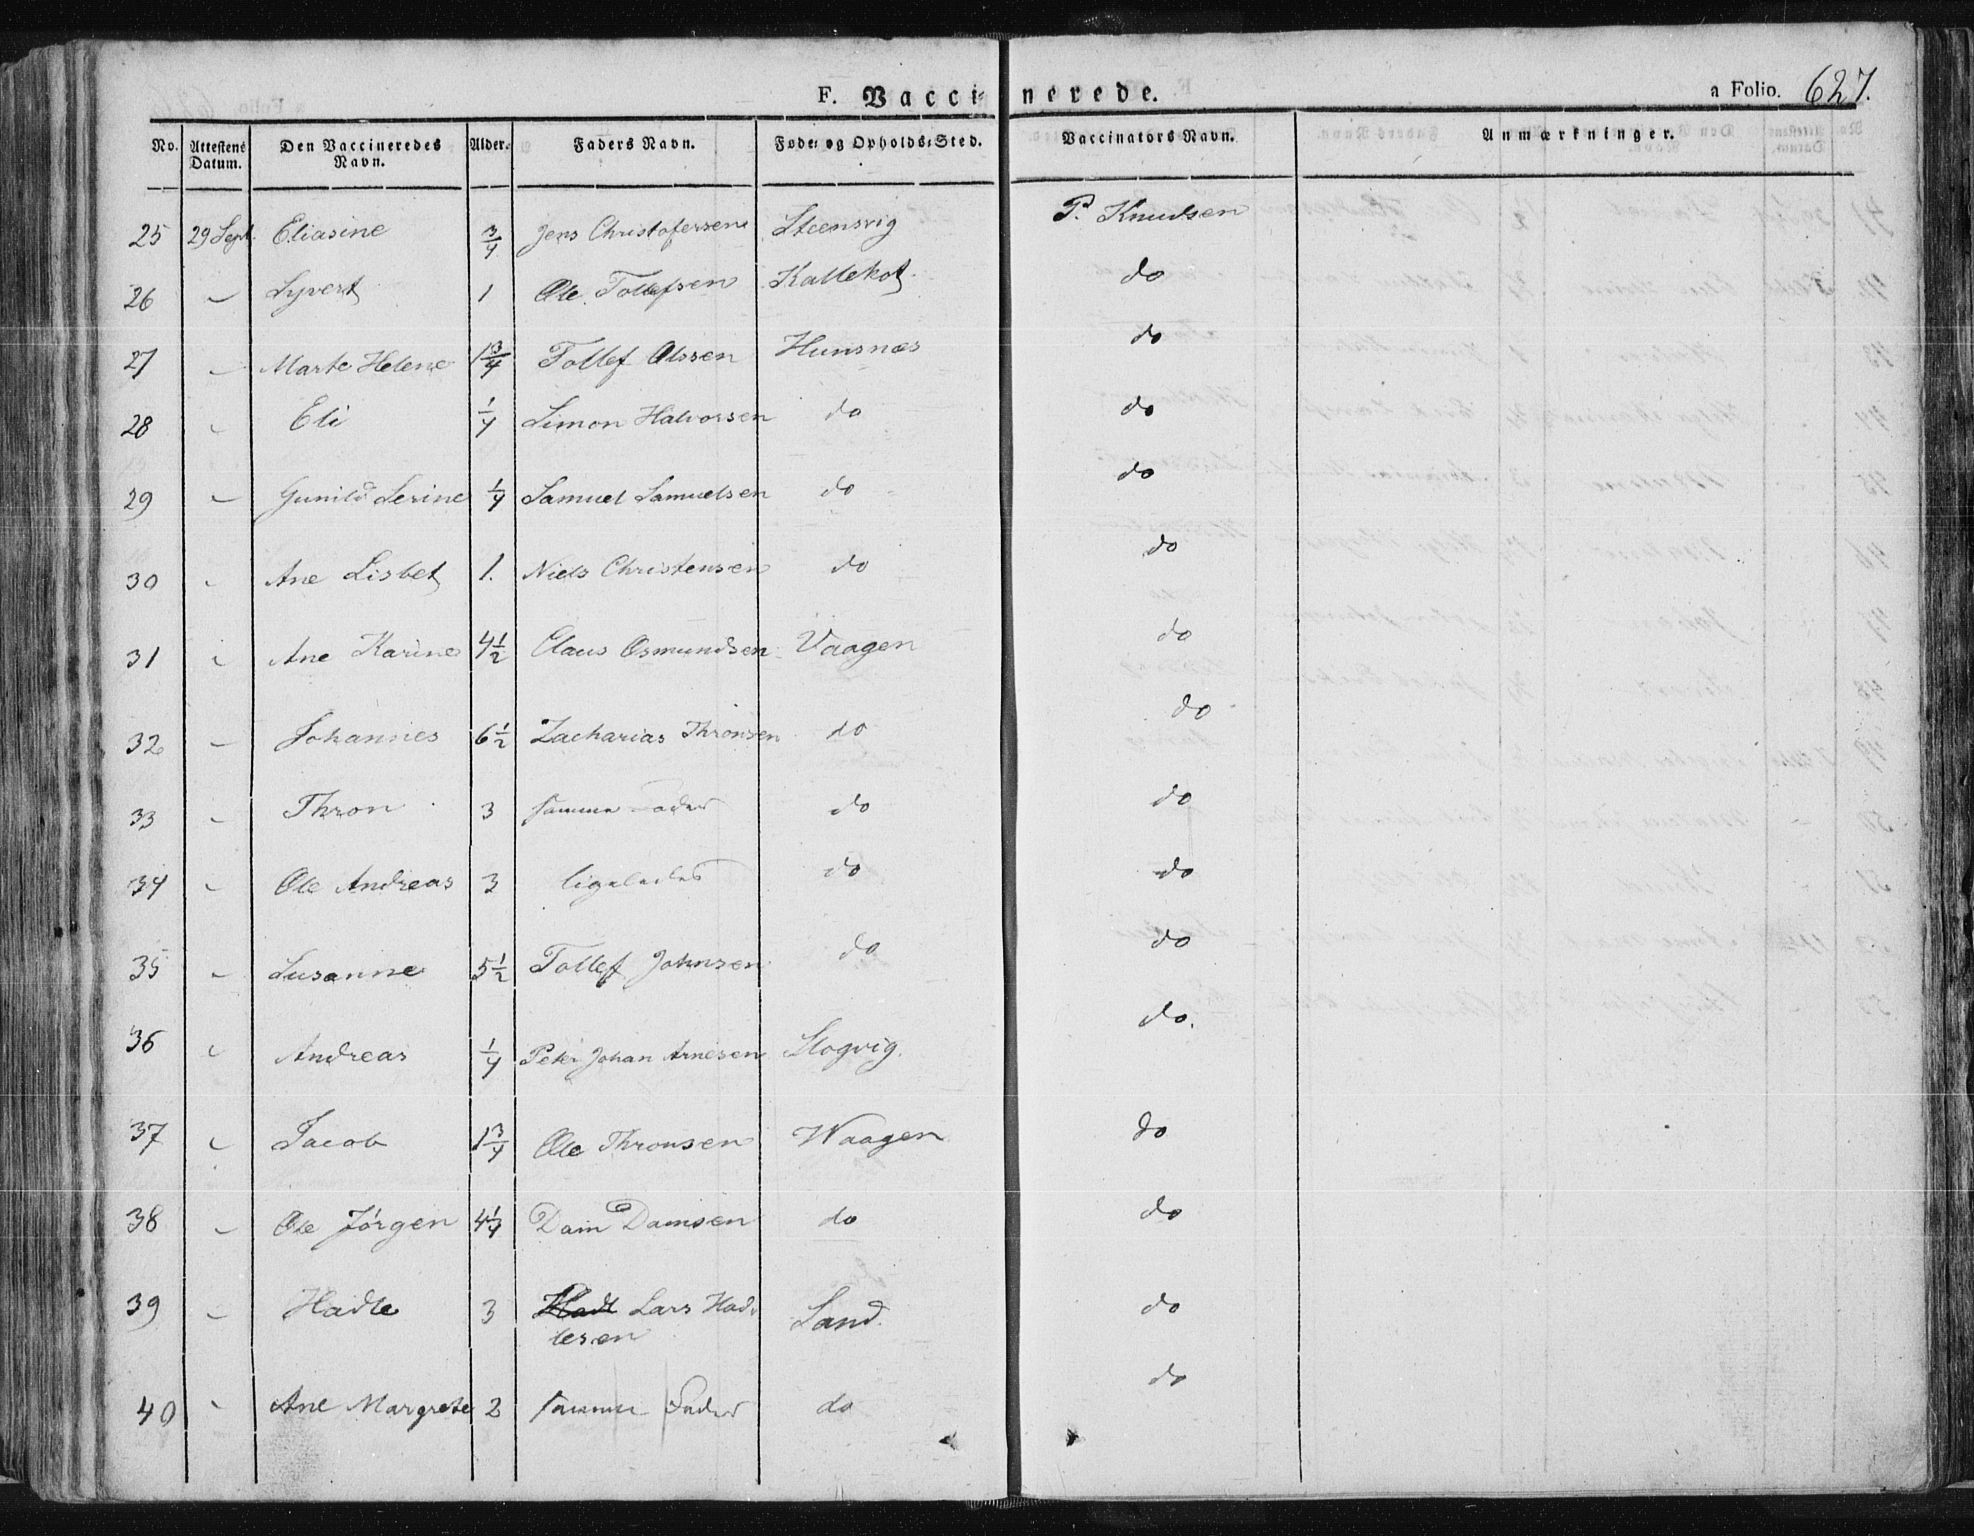 F. Vaccinerede. a Folio. 627.
No. Attestens Datum. Den Vaccineredes Navn. Alder. Faders Navn. Føde- og Opholds-Sted. Vaccinators Navn. Anmærkninger.
25 29 Sept. Eliasine 3/4 Jens Christofersen Steensvig P. Knudsen
26 – Syvert 1 Ole Tollefsen Kallekot do
27 – Marte Helene 1 3/4 Tollef Olssen Hunsnæs do
28 – Eli 1/4 Simon Halvorsen do do
29 – Gunild Serine 1/4 Samuel Samuelsen do do
30 – Ane Lisbet 1. Niels Christensen do do
31 – Ane Karine 4 1/2 Claus Osmundsen Vaagen do
32 – Johannes 6 1/2 Zacharias Thronsen do do
33 – Thron 3 samme Fader do do
34 – Ole Andreas 3 ligeledes do do
35 – Susanne 5 1/2 Tollef Johnsen do do
36 – Andreas 1/4 Peter Johan Arnesen Slogvig. do.
37 – Jacob 1 3/4 Ole Thronsen Waagen do
38 – Ole Jørgen 4 1/4 Dam Damsen do do
39 – Hadle 3 Hadl Lars Had-
lesen Sand. do
40 – Ane Margrete 2 samme Fader do do